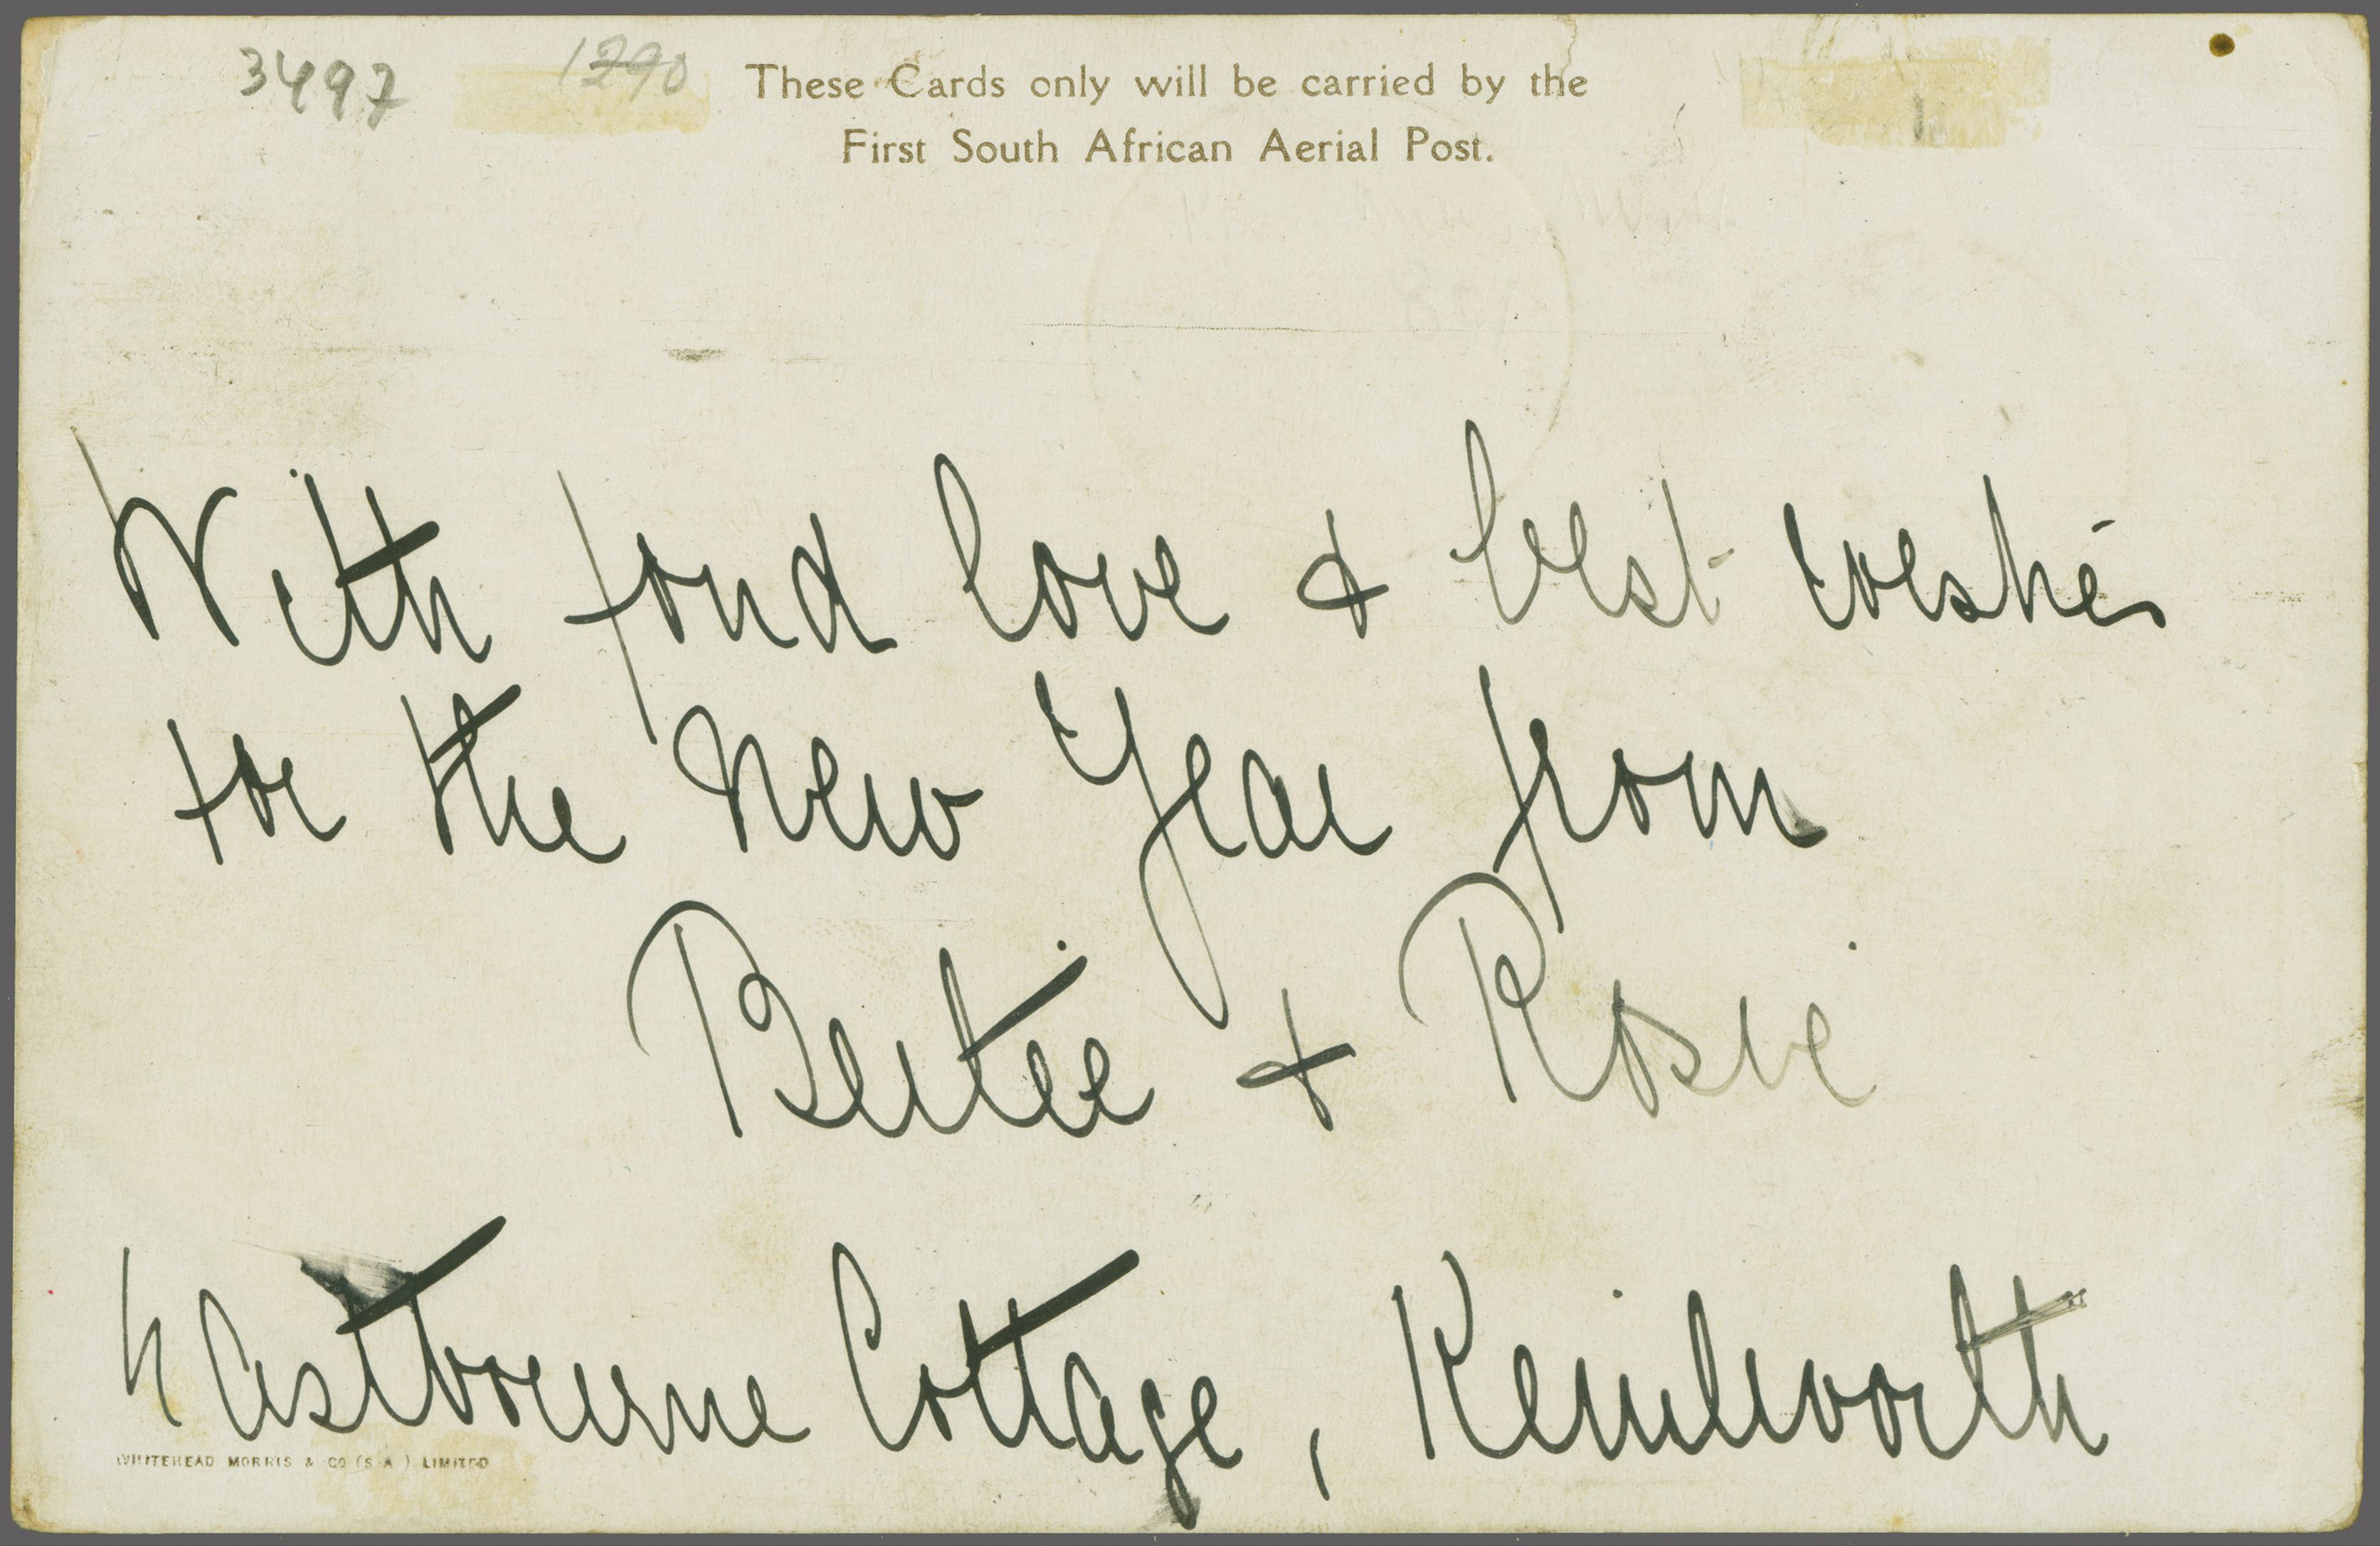 3497 1290
These Cards only will be carried by the
First South African Aerial Post.
With fond love & best wishes
for the New Year from
Bertie & Rosie
Eastbourne Cottage, Kenilworth
WHITEHEAD MORRIS & CO (S.A.) LIMITED